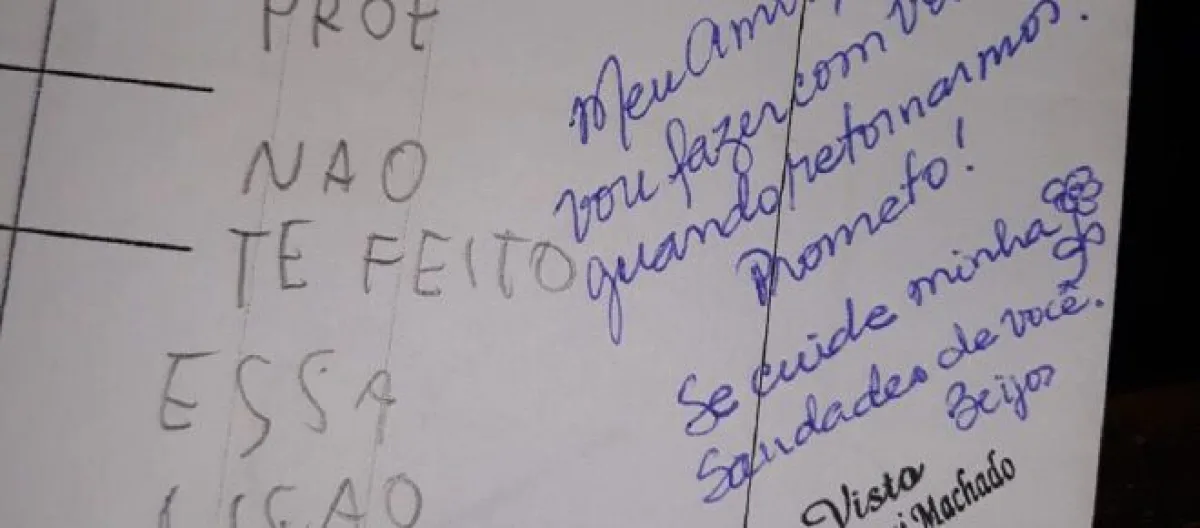 PROF
NAO
TE FEITO
ESSA
LICAO
Meu Ami
vou fazer com vo
quando retornarmos.
Prometo!
Se cuide minha
Saudades de você.
Beijos
Visto
Machado